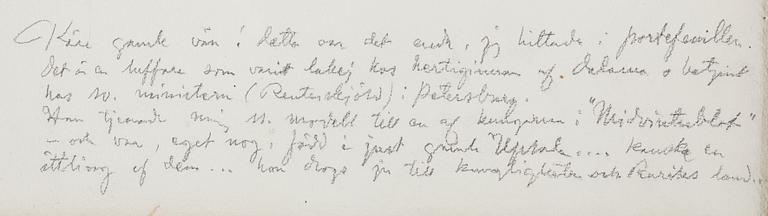 Käre gamle vän! detta var det enda, jag hittade i portefeuillen.
det är en luffare som varit lakej hos hertiginnan af Dalarna o betjent
hos sv. ministern (Reuterskjöld) i Petersburg.
Han tjenade mig ss. modell till en af kungarna i "Midvinterblot"
– och var, eget nog, född i just gamla Upsala .... kanske en
ättling af dem ... han drogs ju till kungligheten och Rurikes land..